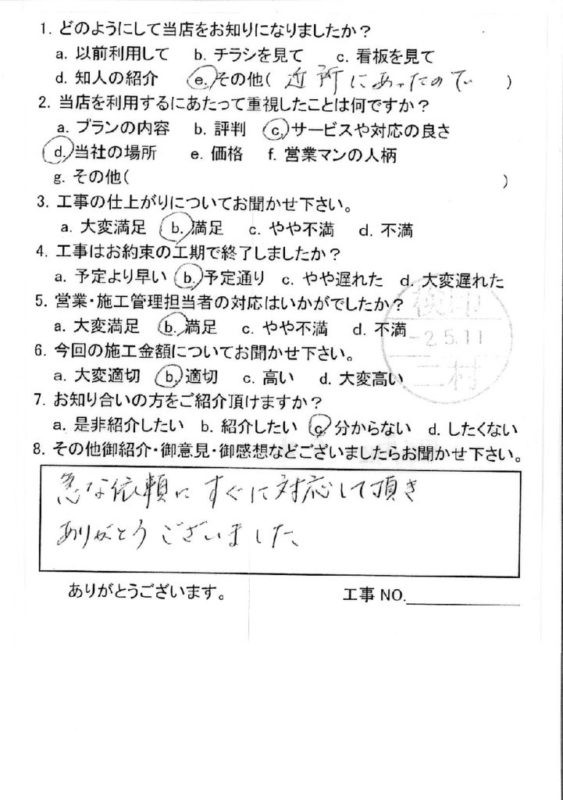 1. どのようにして当店をお知りになりましたか？
a. 以前利用して b. チラシを見て c. 看板を見て
d. 知人の紹介 e. その他( 近所にあったので )
2. 当店を利用するにあたって重視したことは何ですか？
a. プランの内容 b. 評判 c. サービスや対応の良さ
d. 当社の場所 e. 価格 f. 営業マンの人柄
g. その他( )
3. 工事の仕上がりについてお聞かせ下さい。
a. 大変満足 b. 満足 c. やや不満 d. 不満
4. 工事はお約束の工期で終了しましたか？
a. 予定より早い b. 予定通り c. やや遅れた d. 大変遅れた
5. 営業・施工管理担当者の対応はいかがでしたか？
a. 大変満足 b. 満足 c. やや不満 d. 不満
検印
-2.5.11
二村
6. 今回の施工金額についてお聞かせ下さい。
a. 大変適切 b. 適切 c. 高い d. 大変高い
7. お知り合いの方をご紹介頂けますか？
a. 是非紹介したい b. 紹介したい c. 分からない d. したくない
8. その他御紹介・御意見・御感想などございましたらお聞かせ下さい。
急な依頼にすぐに対応して頂き
ありがとうございました
ありがとうございます。 工事 NO.